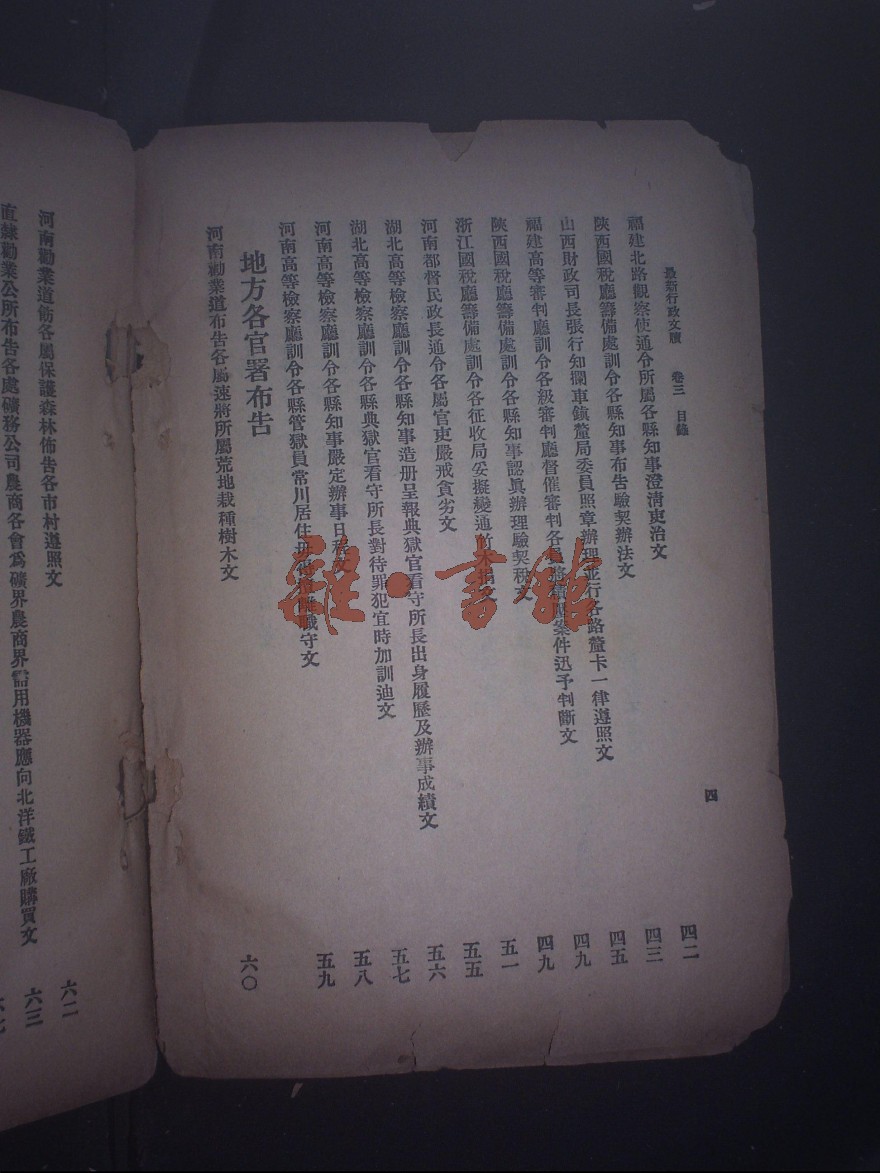 最新行政文牘 卷三 目錄 四
福建北路觀察使通令所屬各縣知事澄清吏治文 四二
陝西國稅廳籌備處訓令各縣知事布告驗契辦法文 四三
山西財政司長張行知攔車鎮釐局委員照章辦理並行各路釐卡一律遵照文 四五
福建高等審判廳訓令各級審判廳督催審判各員 案件迅予判斷文 四九
陝西國稅廳籌備處訓令各縣知事認眞辦理驗契稅文 四九
浙江國稅廳籌備處訓令各征收局妥擬變通竹木捐文 五一
河南都督民政長通令各屬官吏嚴戒貪劣文 五五
湖北高等檢察廳訓令各縣知事造册呈報典獄官看守所長出身履歷及辦事成績文 五六
湖北高等檢察廳訓令各縣典獄官看守所長對待罪犯宜時加訓迪文 五七
河南高等檢察廳訓令各縣知事嚴定辦事日程文 五八
河南高等檢察廳訓令各縣管獄員常川居住 職守文 五九
地方各官署布告
河南勸業道布告各屬速將所屬荒地栽種樹木文 六〇
河南勸業道飭各屬保護森林佈告各市村遵照文 六二
直隸勸業公所布告各處礦務公司農商各會爲礦界農商界需用機器應向北洋鐵工廠購買文 六三
羅·書館